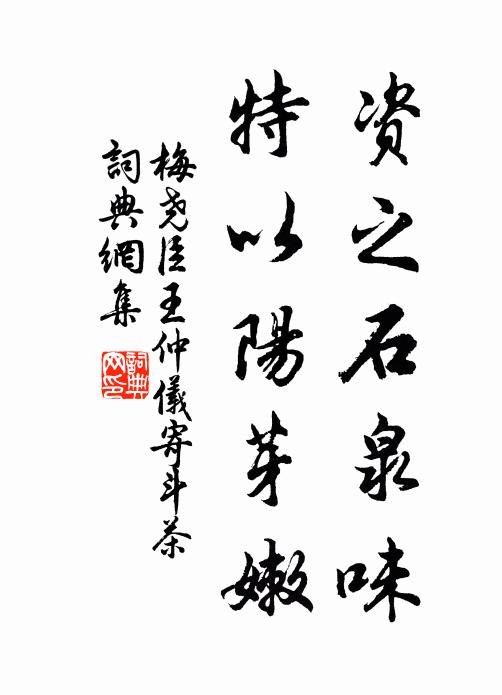 资之石泉味
特以陽芽嫩
梅尧臣王仲儀寄斗茶
詞典網集
詞典
网印